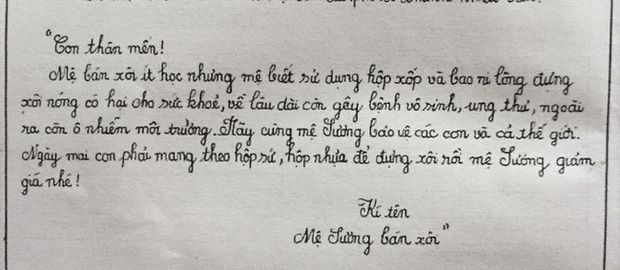 "Con thân mến!
Mệ bán xôi ít học nhưng mệ biết sử dung hộp xốp và bao ni lông đựng
xôi nóng có hại cho sức khoẻ, về lâu dài còn gây bệnh vô sinh, ung thư, ngoài
ra còn ô nhiễm môi trường. Hãy cùng mệ Sương bảo vệ các con và cả thế giới.
Ngày mai con phải mang theo hộp sứ, hộp nhựa để đựng xôi rồi mệ Sương giảm
giá nhé!
Kí tên
Mệ Sương bán xôi"